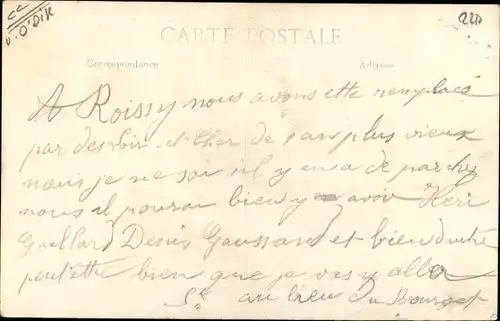 CARTE POSTALE
Correspondance Adresse
A Roissy nous avons etté remplacé
par des Loir et Cher de 2 ans plus vieux
nous je ne sai il y en a de par chez
nous il pourai bien y avoir Heri
Gaillard Denis Gaussand et bien dautre
peut etté bien que je vais y aller
au lieu du Bourget